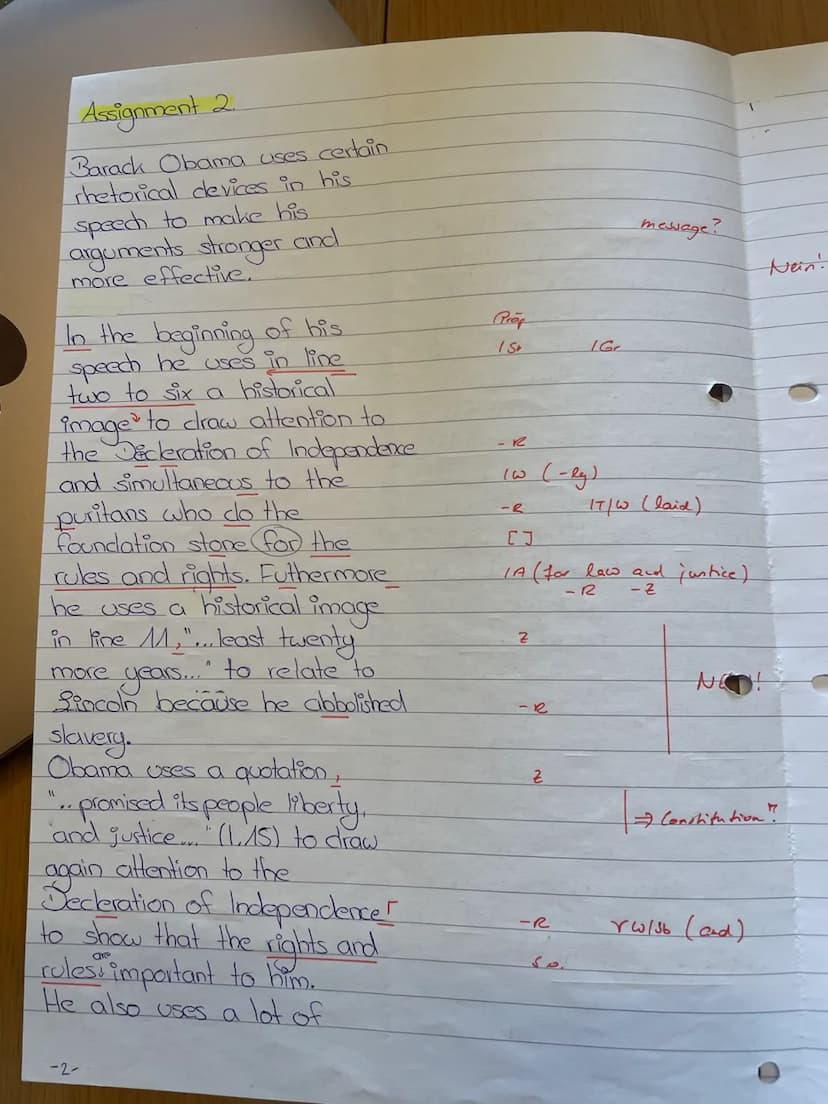 Assignment 2.
Barack Obama uses certain
rhetorical devices in his
speech to make his
arguments stronger and
more effective.
message?
Nein!
In the beginning of his
Präp
speech he uses in line
1St 1Gr
two to six a historical
image to draw attention to
the Decleration of Independence
-R
and simultaneous to the
1W (-ly)
puritans who do the
-R 1T/W (laid)
foundation stone for the
[]
rules and rights. Futhermore
1A (for law and justice)
-R -Z
he uses a historical image
in line 11, "...least twenty
Z
more years..." to relate to
Lincoln because he abbolished
-R
slavery.
Obama uses a quotation,
Z
"... promised its people liberty,
and justice..." (l.15) to draw
⇒ Constitution?
again attention to the
Decleration of Independence
-R (and)
to show that the rights and
s.o.
rules are important to him.
He also uses a lot of
-2-